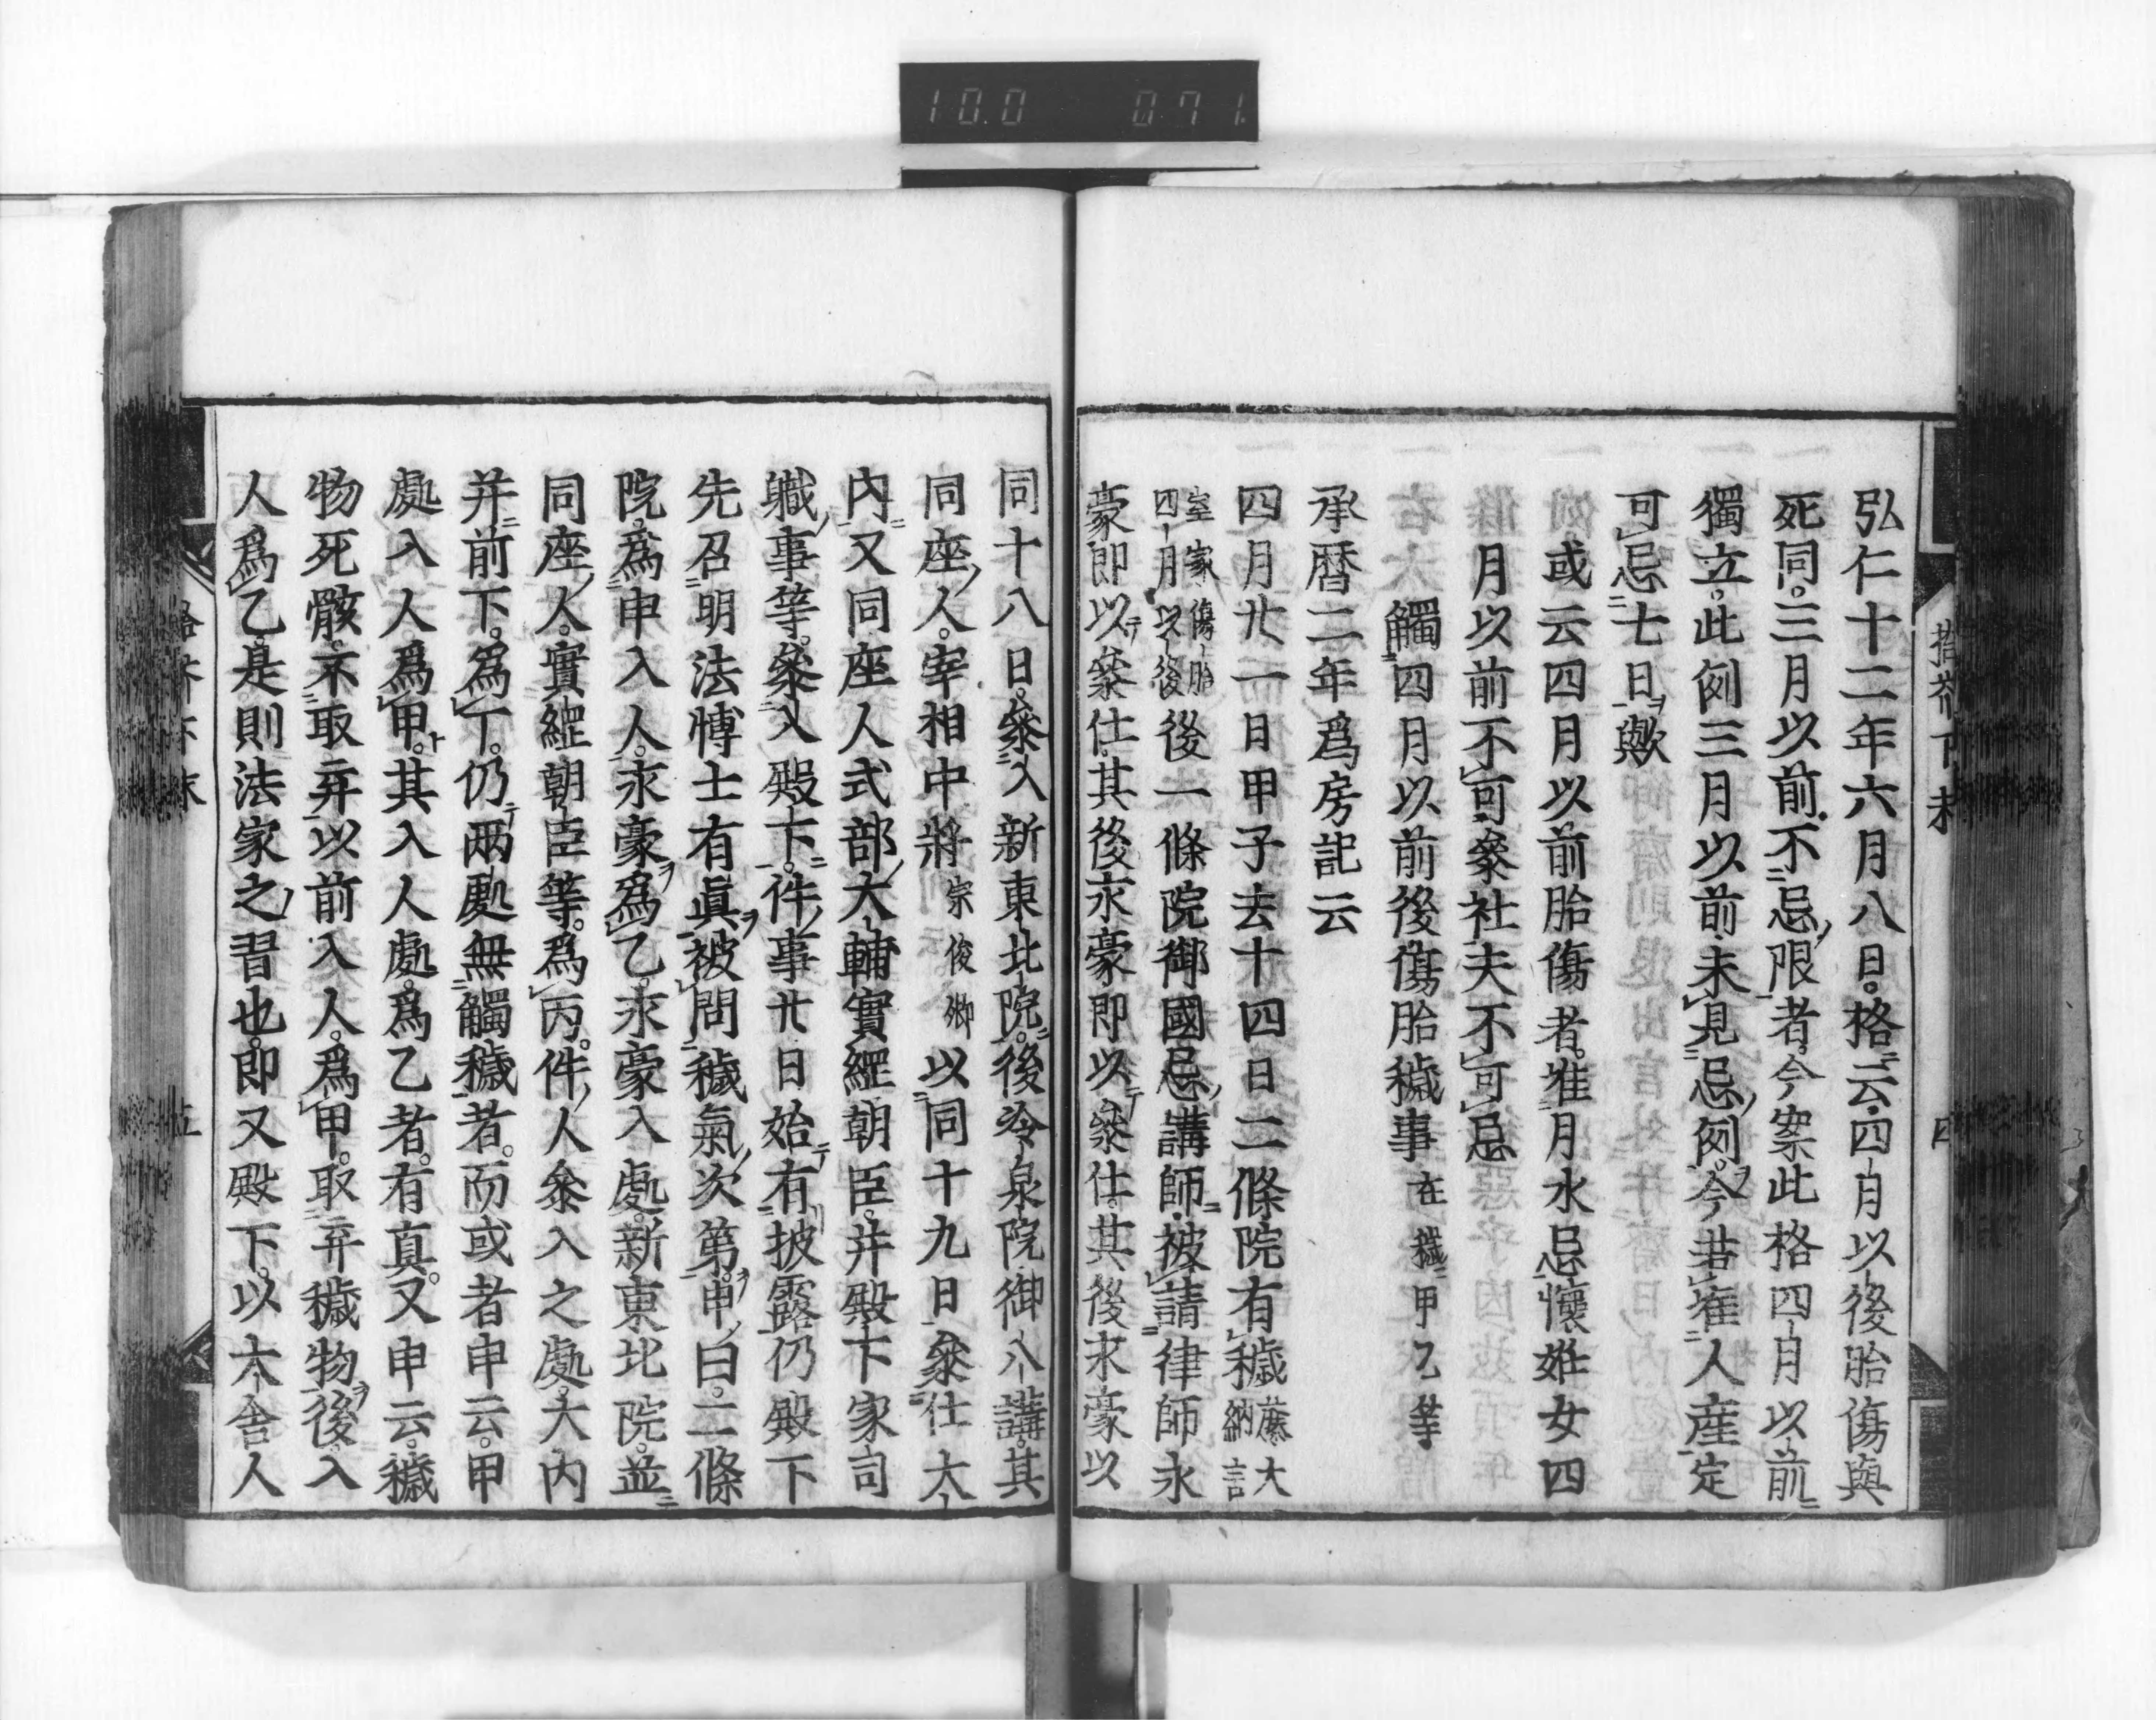 10.0 0.71
弘仁十二年六月八日格云四月以後胎傷與
死同三月以前不忌限者今案此格四月以前
獨立此例三月以前未見忌例今若准人産定
可忌七日歟
或云四月以前胎傷者准月水忌懷妊女四
月以前不可參社夫不可忌
觸四月以前後傷胎穢事 在穢甲乙等
承暦二年爲房記云
四月廿一日甲子去十四日二條院有穢 藤大納言
室家傷胎四月以後 後一條院御國忌講師被請律師永
豪即以參仕其後永豪即以參仕其後永豪以
同十八日參入新東北院後冷泉院御八講其
同座人宰相中將 宗俊卿 以同十九日參仕大
内又同座人式部大輔實經朝臣并殿下家司
職事等參入殿下件事廿日始有披露仍殿下
先召明法博士有眞被問穢氣次第申曰二條
院爲申入人永豪爲乙永豪入處新東北院並
同座人實經朝臣等爲丙件人參入之處大内
并前下爲丁仍兩處無觸穢者而或者申云甲
處入人爲甲其入人處爲乙者有真又申云穢
物死骸不取弃以前入人爲甲取弃穢物後入
人爲乙是則法家之習也即又殿下以大舎人